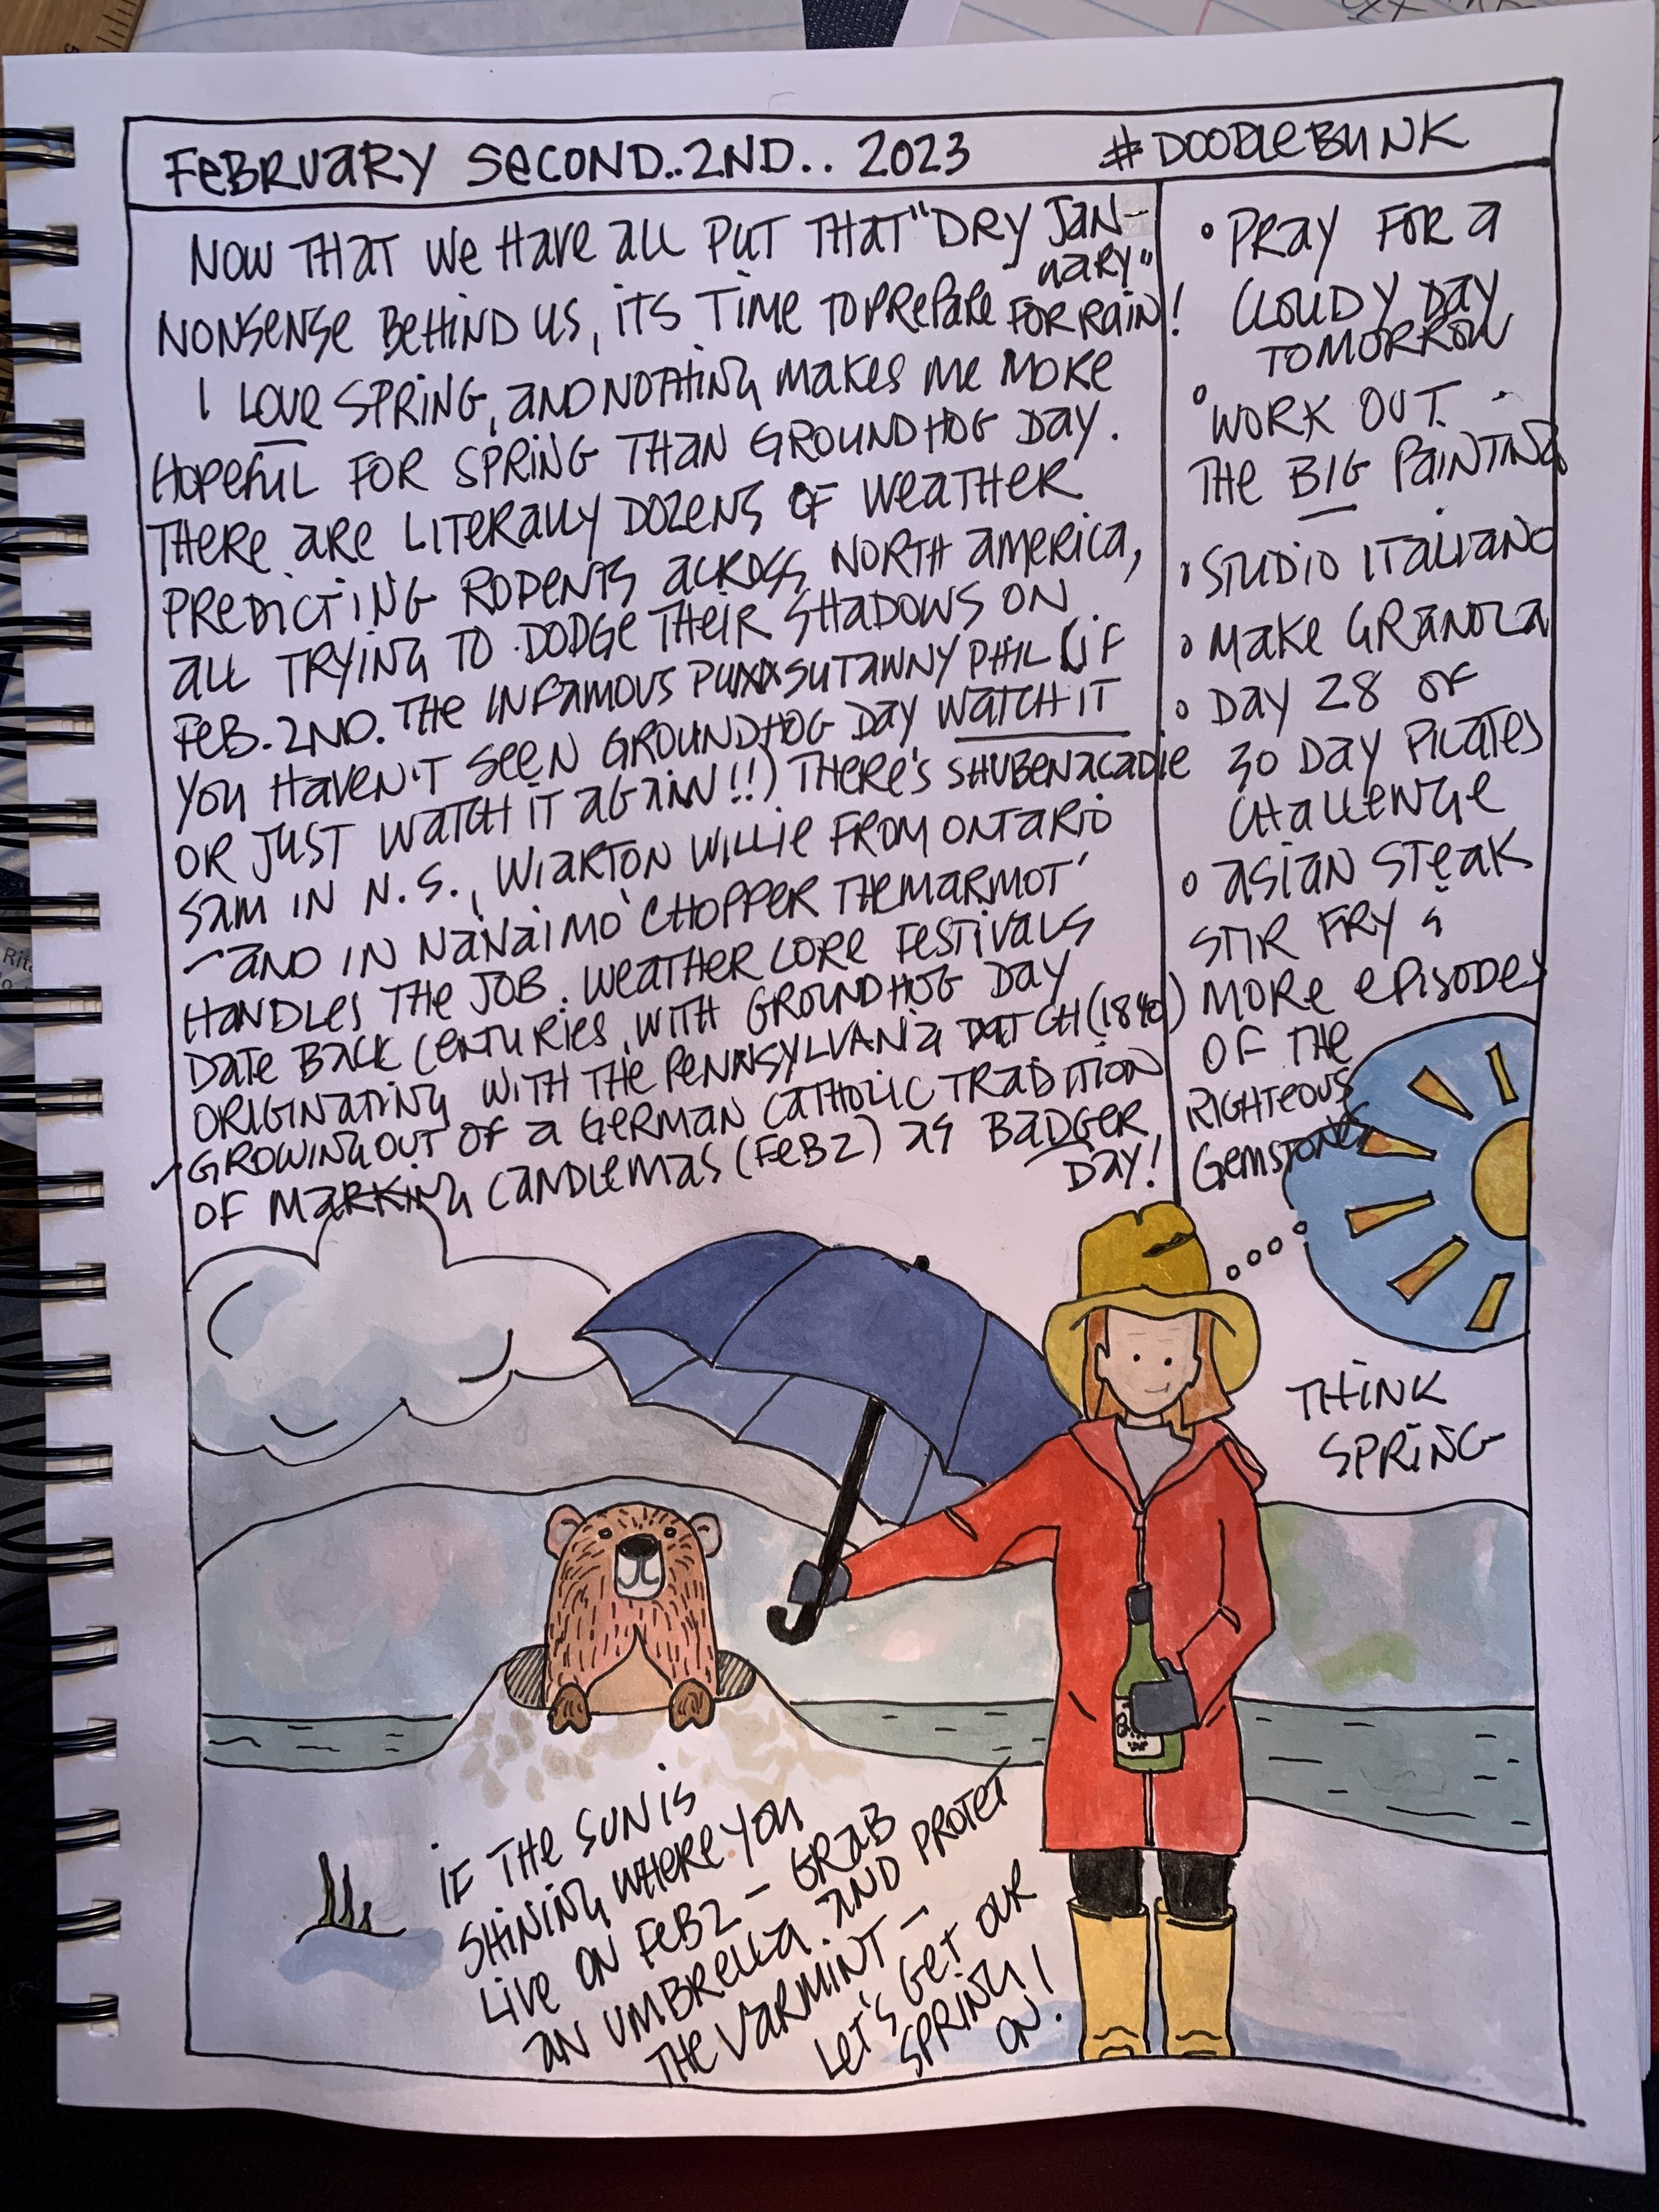 FEBRUARY SECOND..2ND.. 2023 #DOODLEBUNK
NOW THAT WE HAVE ALL PUT THAT "DRY JAN-
UARY"
NONSENSE BEHIND US, ITS TIME TO PREPARE FOR RAIN!
I LOVE SPRING, AND NOTHING MAKES ME MORE
HOPEFUL FOR SPRING THAN GROUNDHOG DAY.
THERE ARE LITERALLY DOZENS OF WEATHER
PREDICTING RODENTS ACROSS NORTH AMERICA,
ALL TRYING TO DODGE THEIR SHADOWS ON
FEB. 2ND. THE INFAMOUS PUXXSUTAWNY PHIL (IF
YOU HAVEN'T SEEN GROUNDHOG DAY WATCH IT
OR JUST WATCH IT AGAIN!!) THERE'S SHUBENACADIE
SAM IN N.S., WIARTON WILLIE FROM ONTARIO
- AND IN NANAIMO 'CHOPPER THE MARMOT'
HANDLES THE JOB. WEATHER LORE FESTIVALS
DATE BACK CENTURIES, WITH GROUNDHOG DAY
ORIGINATING WITH THE PENNSYLVANIA DUTCH (1840)
GROWING OUT OF A GERMAN CATHOLIC TRADITION
OF MARKING CANDLEMAS (FEB 2) AS BADGER
DAY!
• PRAY FOR A
CLOUDY DAY
TOMORROW
• WORK OUT.
THE BIG PAINTING
• STUDIO ITALIANO
• MAKE GRANOLA
• DAY 28 OF
30 DAY PILATES
CHALLENGE
• ASIAN STEAK
STIR FRY &
MORE EPISODES
OF THE
RIGHTEOUS
GEMSTONES
THINK
SPRING
IF THE SUN IS
SHINING WHERE YOU
LIVE ON FEB 2 - GRAB
AN UMBRELLA. AND PROTET
THE VARMINT -
LET'S GET OUR
SPRING
ON!